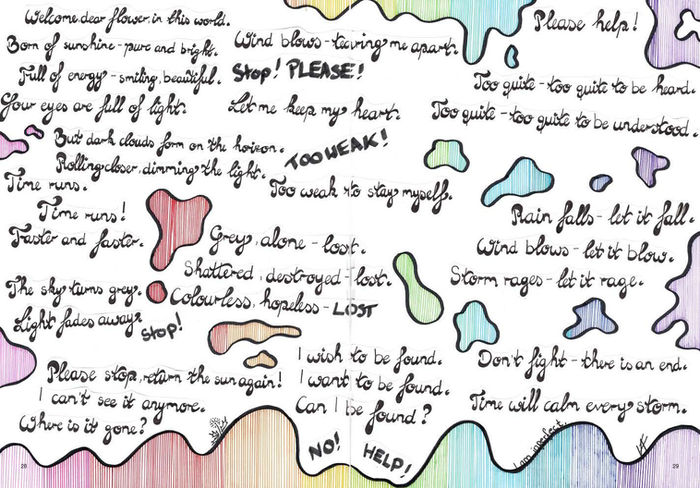 Welcome dear flower in this world.
Born of sunshine - pure and bright.
Full of energy - smiling, beautiful.
Your eyes are full of light.
But dark clouds form on the horizon.
Rolling closer, dimming the light.
Time runs.
Time runs!
Faster and faster.
The sky turns grey.
Light fades away.
Stop!
Please stop, return the sun again!
I can't see it anymore.
Where is it gone?
Wind blows - tearing me apart.
Stop! PLEASE!
Let me keep my heart.
TOO WEAK!
Too weak to stay myself.
Grey, alone - lost.
Shattered, destroyed - lost.
Colourless, hopeless - LOST
I wish to be found.
I want to be found.
Can I be found?
NO!
HELP!
Please help!
Too quite - too quite to be heard.
Too quite - too quite to be understood.
Rain falls - let it fall.
Wind blows - let it blow.
Storm rages - let it rage.
Don't fight - there is an end.
Time will calm every storm.
28
29